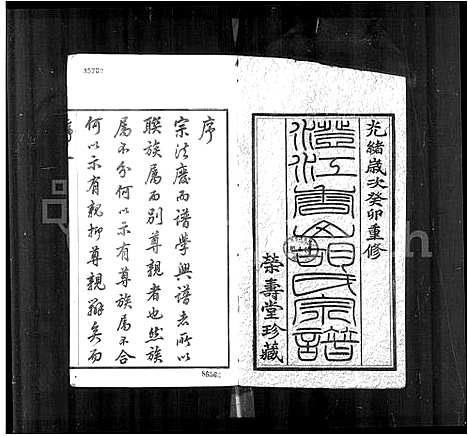 光緒歲次癸卯重修
澄江袁氏宗譜
榮壽堂珍藏
序
宗法廢而譜學興譜者所以
聯族屬而別尊親者也然族
屬不分何以示有尊族屬不合
何以示有親抑尊親辨矣而